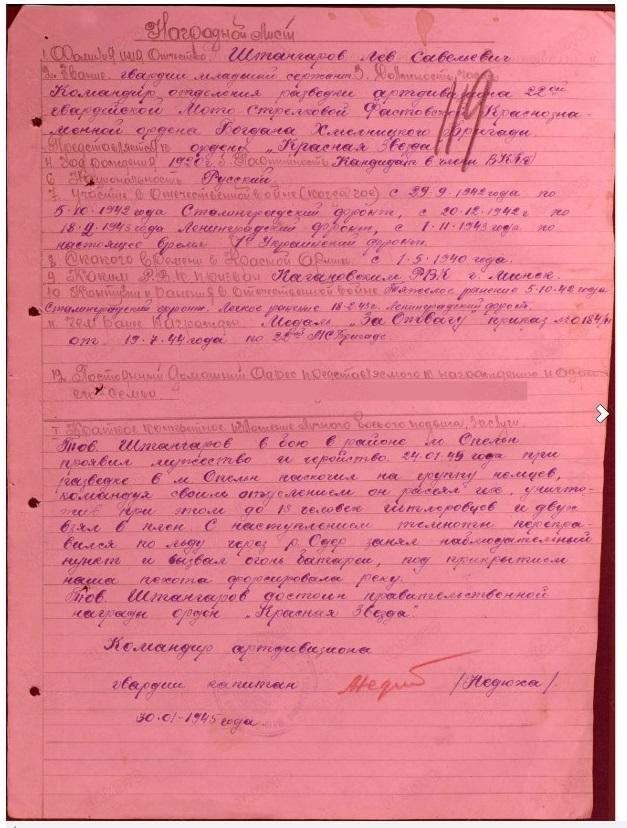 Наградной Лист
1. Фамилия имя Отчество Штангаров Лев Савельевич
2. Звание гвардии младший сержант 3. Должность, часть
Командир отделения разведки артдивизиона 22ой
гвардейской Мото-Стрелковой Фастовской Краснозна-
менной ордена Богдана Хмельницкого бригады.
Представляется к ордену „Красная Звезда"
4. Год рождения 1920 г. 5. Партийность Кандидат в члены ВКПб
6. Национальность Русский
7. Участие в Отечественной войне (когда где) с 29.9.1942 года по
5.10.1942 года Сталинградский фронт, с 20.12.1942 г по
18.9.1943 года Ленинградский фронт, с 1.11.1943 года по
настоящее время 1й Украинский фронт.
8. С какого времени в Красной Армии. с 1.5.1940 года.
9. Каким Р.В.К призван Кагановским РВК г. Минск.
10. Контузии и ранения в отечественной войне Тяжелое ранение 5.10.42 года
Сталинградский фронт. Легкое ранение 18.2.43г. Ленинградский фронт.
11. Чем ранее награжден. Медаль „За Отвагу" приказ №0184/н
от 19.7.44 года по 22ой МСБригаде.
12. Постоянный домашний Адрес представляемого к награждению и адрес
его семьи
1. Краткое конкретное изложение личного боевого подвига, заслуги
Тов. Штангаров в бою в районе м Опельн
проявил мужество и геройство. 24.01.45 года при
разведке в м Опельн наскочил на группу немцев,
командуя своим отделением он рассеял их, уничто-
жив при этом до 13 человек гитлеровцев и двух
взял в плен. С наступлением темноты перепра-
вился по льду через р. Одер занял наблюдательный
пункт и вызвал огонь батареи, под прикрытием
наша пехота форсировала реку.
Тов. Штангаров достоин правительственной
награды орден „Красная Звезда".
Командир артдивизиона
гвардии капитан /Недюха/.
30.01-1945 года.
119